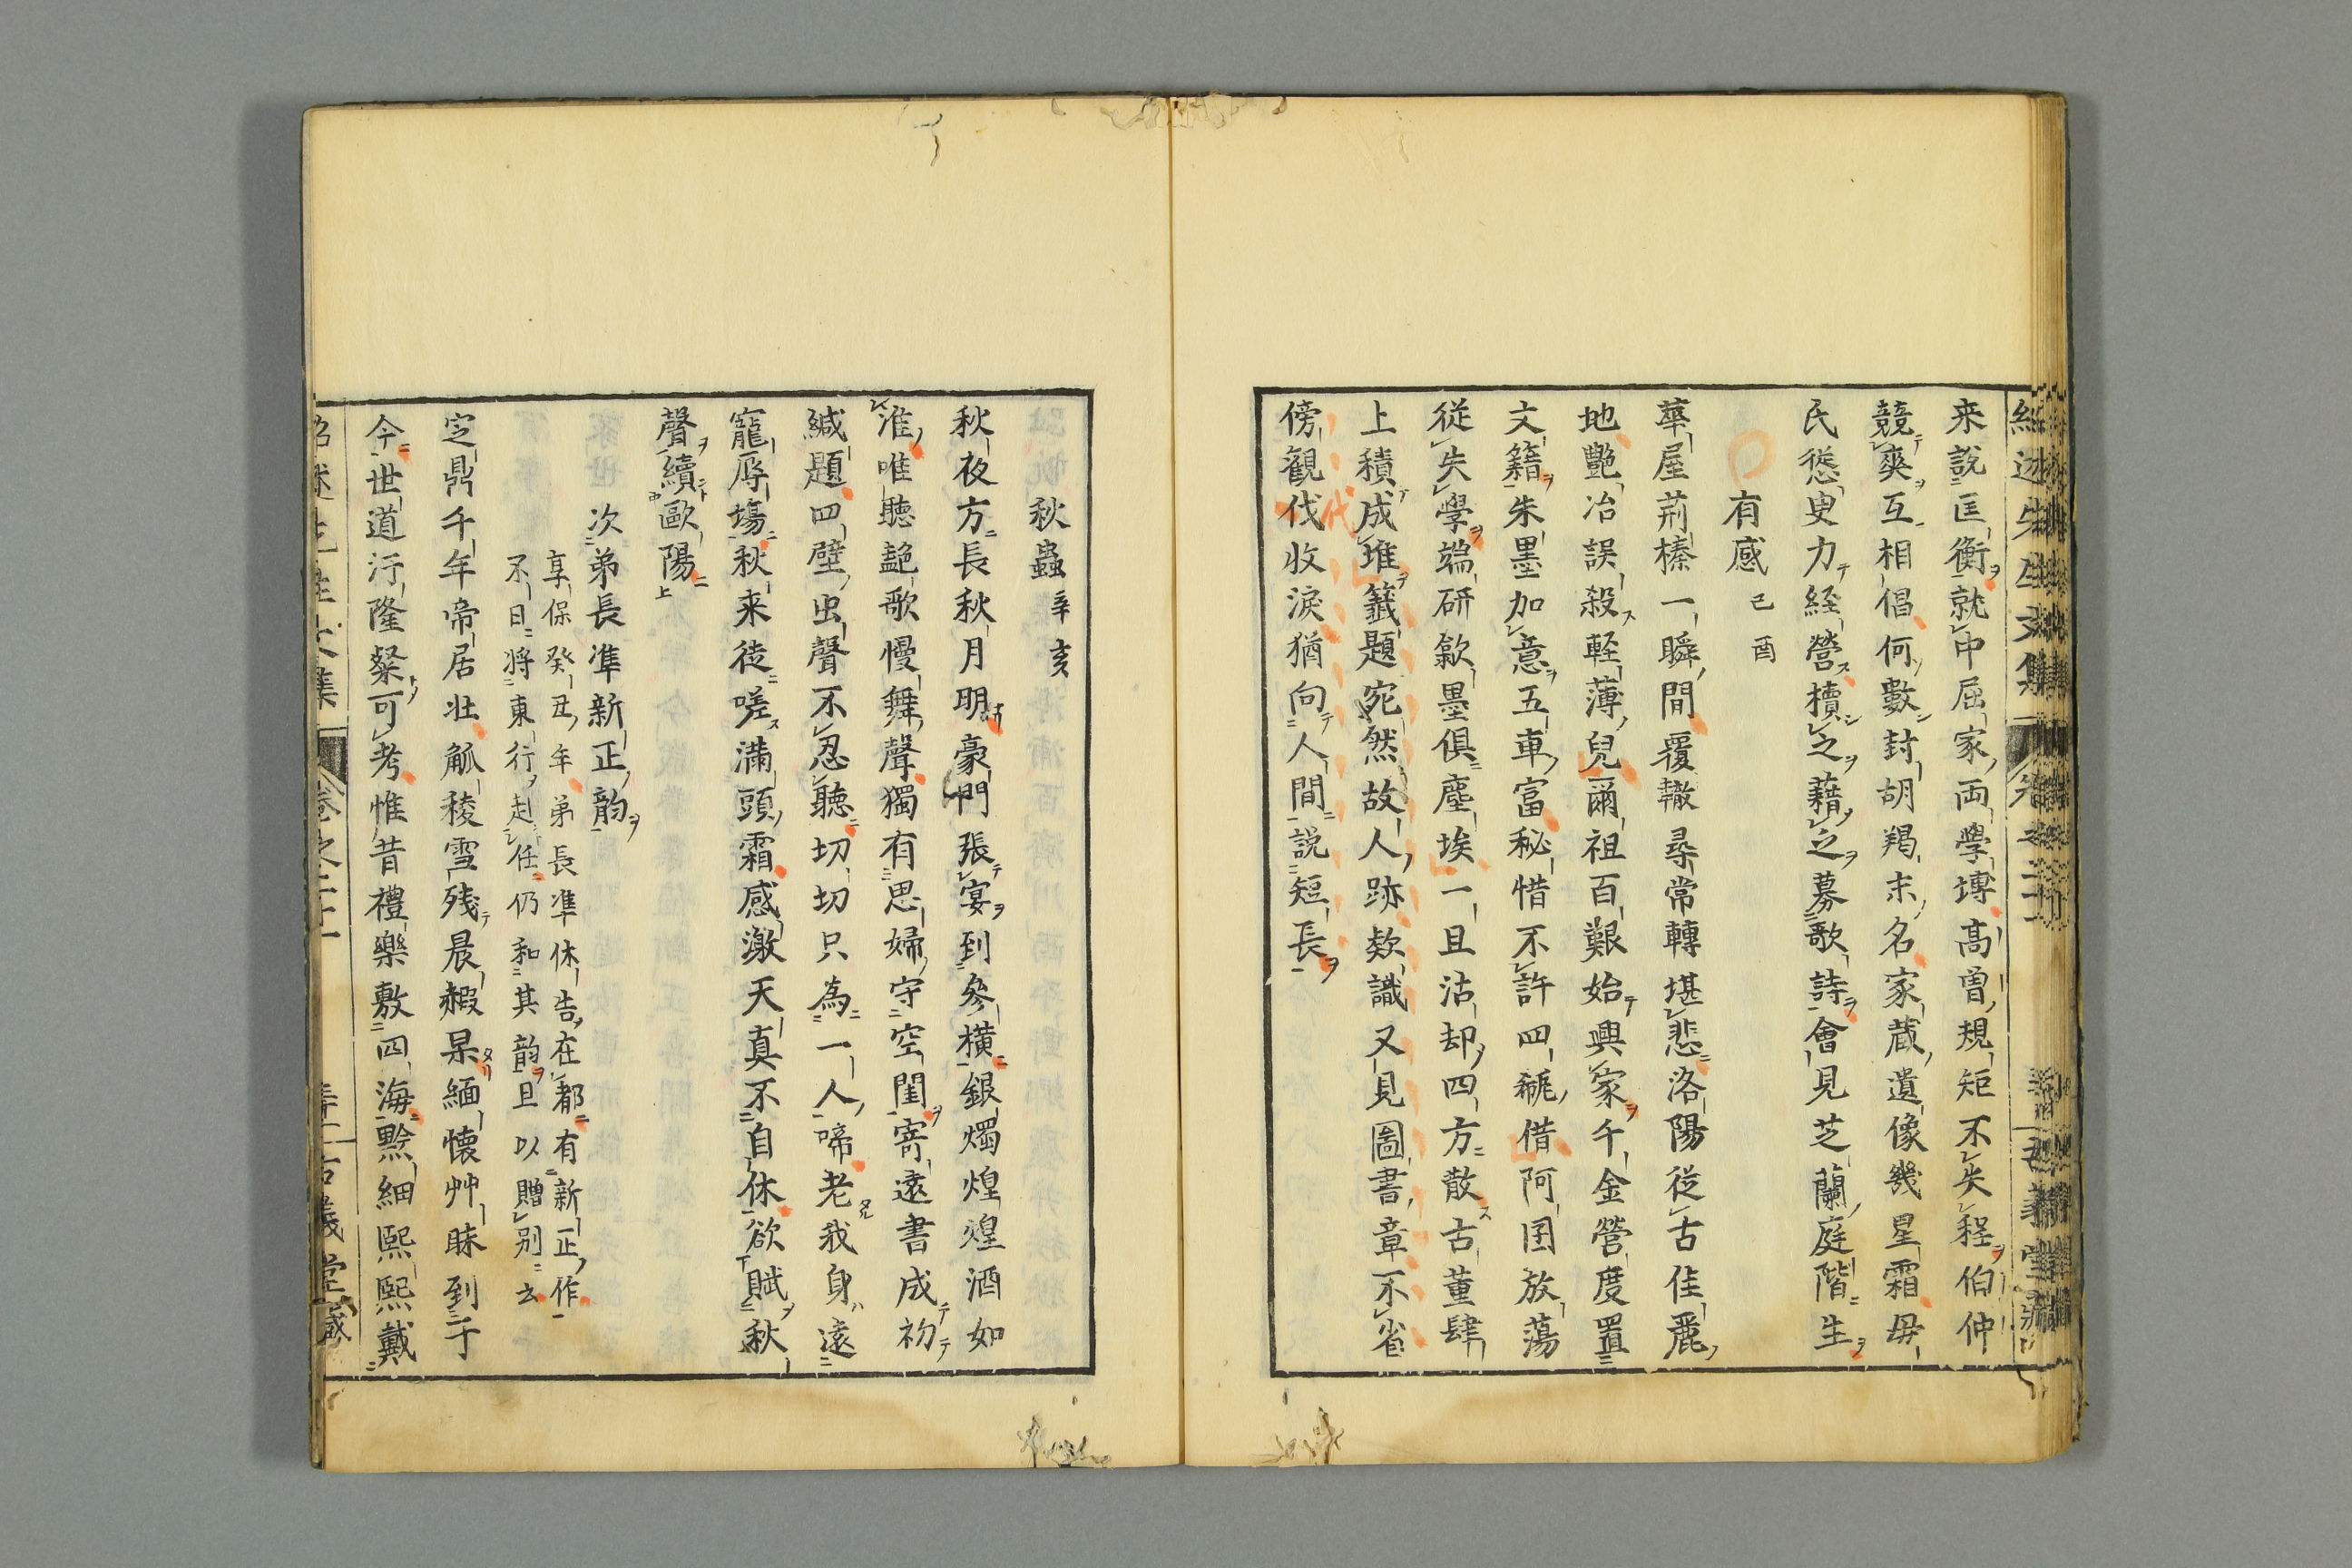 来說匡衡就中屈家両學博髙曽規矩不失程伯仲
競爽互相倡何數封胡羯末名家蔵遺像幾星霜毋
民慫叟力経營櫝之藉之募歌詩會見芝蘭庭階生
有感 己酉
華屋荊榛一瞬間覆轍尋常轉堪悲洛陽従古佳麗
地艶冶誤殺軽薄兒爾祖百艱始興家千金營度置
文籍朱墨加意五車富秘惜不許四瓻借阿囝放蕩
従失學端研歙墨俱塵埃一旦沽却四方散古董肆
上積成堆籤題宛然故人跡欵識又見圖書章不省
傍観伐收淚猶向人間説短長
代
秋蟲 辛亥
秋夜方長秋月明豪門張宴到參横銀燭煌煌酒如
淮唯聽艶歌慢舞聲獨有思婦守空閨寄遠書成初
緘題四壁虫聲不忍聽切切只為一人啼老我身遠
寵辱塲秋来徒嗟滿頭霜感激天真不自休欲賦秋
聲續歐陽
次弟長準新正韵
享保癸丑年弟長準休告在都有新正作
不日将東行赴任仍和其韵且以贈别云
定鼎千年帝居壮觚稜雪残晨霞杲緬懐艸昧到于
今世道汙隆粲可考惟昔禮樂敷四海黥細熙熙戴